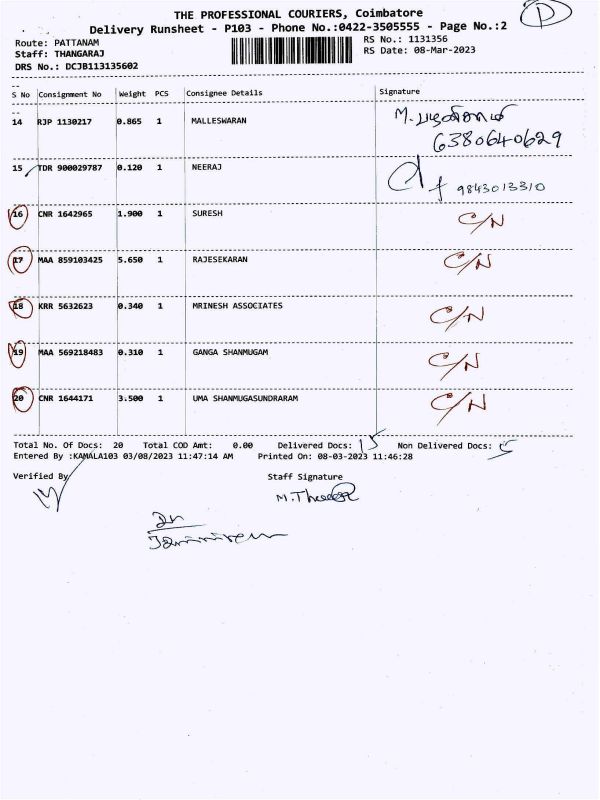 THE PROFESSIONAL COURIERS, Coimbatore
Delivery Runsheet - P103 - Phone No.:0422-3505555 - Page No.:2
Route: PATTANAM RS No.: 1131356
Staff: THANGARAJ RS Date: 08-Mar-2023
DRS No.: DCJB113135602
S No Consignment No Weight PCS Consignee Details Signature
14 RJP 1130217 0.865 1 MALLESWARAN M.
6380640629
15 TDR 900029787 0.120 1 NEERAJ 9843013310
16 CNR 1642965 1.900 1 SURESH C/N
17 MAA 859103425 5.650 1 RAJESEKARAN C/N
18 KRR 5632623 0.340 1 MRINESH ASSOCIATES C/N
19 MAA 569218483 0.310 1 GANGA SHANMUGAM C/N
20 CNR 1644171 3.500 1 UMA SHANMUGASUNDRARAM C/N
Total No. Of Docs: 20 Total COD Amt: 0.00 Delivered Docs: 15 Non Delivered Docs: 5
Entered By :KAMALA103 03/08/2023 11:47:14 AM Printed On: 08-03-2023 11:46:28
Verified By Staff Signature